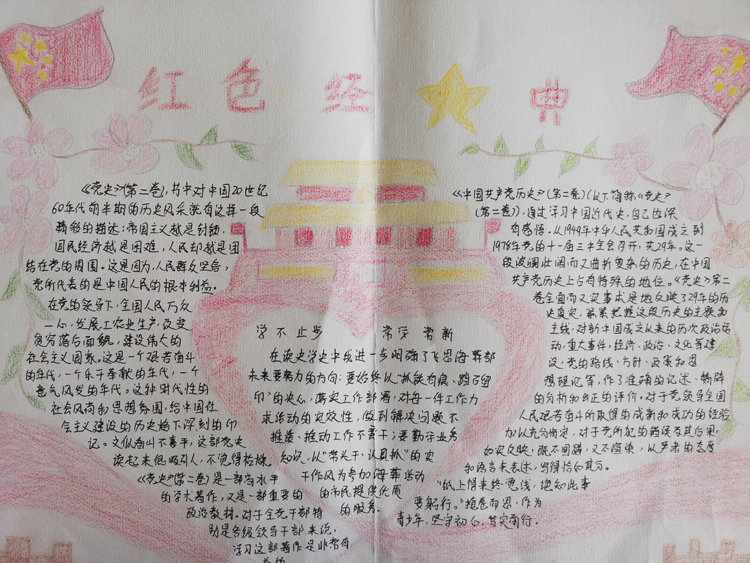 红色经典
《党史》(第二卷),书中对中国20世纪
60年代前半期的历史风采就有这样一段
精彩的描述:帝国主义越是封锁,
国民经济越是困难,人民却越是团
结在党的周围。这是因为,人民群众坚信,
党所代表的是中国人民的根本利益。
在党的领导下,全国人民万众
一心,发展工农业生产,改变
贫穷落后面貌,建设伟大的
社会主义国家。这是一个艰苦奋斗
的年代,一个乐于奉献的年代,一个
意气风发的年代。这种时代性的
社会风尚和思想氛围,给中国社
会主义建设的历史烙下深刻的印
记。文似看山不喜平,这部党史
读起来很吸引人,不觉得枯燥。
《党史》(第二卷)是一部高水平
的学术著作,又是一部重要的
政治教材。对于全党干部特
别是各级领导干部来说,
学习这部著作是非常有
学不止步 常学常新
在读史学史中我进一步明确了飞思海葬部
未来要努力的方向:要始终以“抓铁有痕,踏石留
印”的决心,落实工作部署,对每一件工作力
求活动的实效性,做到解决问题不
推诿,推动工作不畏干;要勤学业务
知识,以“常关于,认真抓”的实
干作风为参加海葬活动
的市民提供优质
的服务。
《中国共产党历史》(第二卷)(以下简称《党史》
(第二卷)),通过学习中国近代史,自己也深
有感悟。从1949年中华人民共和国成立到
1978年党的十一届三中全会召开,共29年。这一
段波澜壮阔而又曲折复杂的历史,在中国
共产党历史上占有特殊的地位。《党史》第二
卷全面而又实事求是地反映了29年的历
史真实,紧紧把握这段历史的主题和
主线,对新中国成立以来的历次政治运
动,重大事件,经济、政治、文化等建
设,党的路线、方针、政策和思
想理论等,作了准确的记述、精辟
的分析和公正的评价,对于党领导全国
人民艰苦奋斗所取得的成就和成功的经验
加以充分肯定,对于党所犯的错误及其后果,
如实反映,既不回避,又不渲染,以严肃的态度
和语言来表述,写得恰如其分。
“纸上得来终觉浅,绝知此事
要躬行。”掩卷有思,作为
青少年,坚守初心,笃实前行。